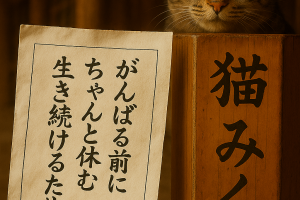 猫みく
がんばる前に
ちゃんと休む
生き続けるた